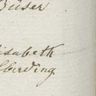 Büser
isabeth
lberding